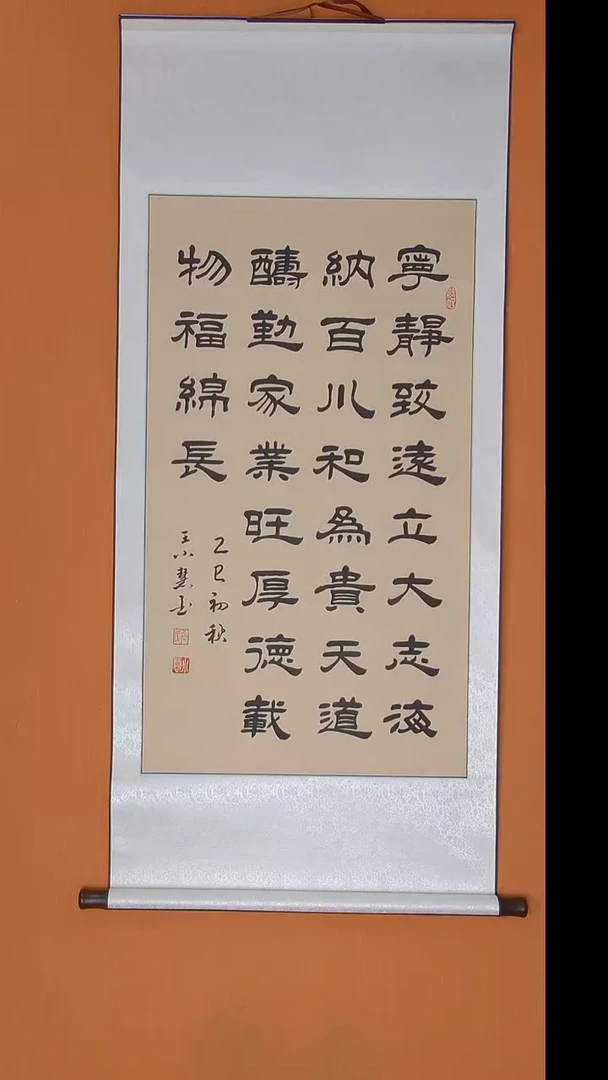 寧靜致遠立大志海
納百川和為貴天道
醻勤家業旺厚德載
物福綿長
乙巳初秋
王小慧書